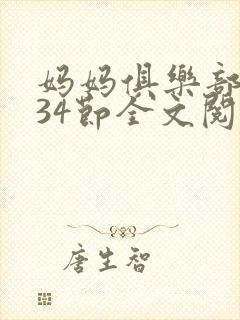 妈妈俱樂部
34節全文閱
唐生智